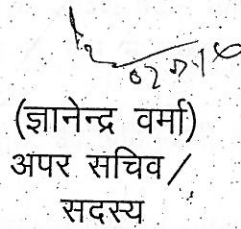 (ज्ञानेन्द्र वर्मा)
अपर सचिव /
सदस्य